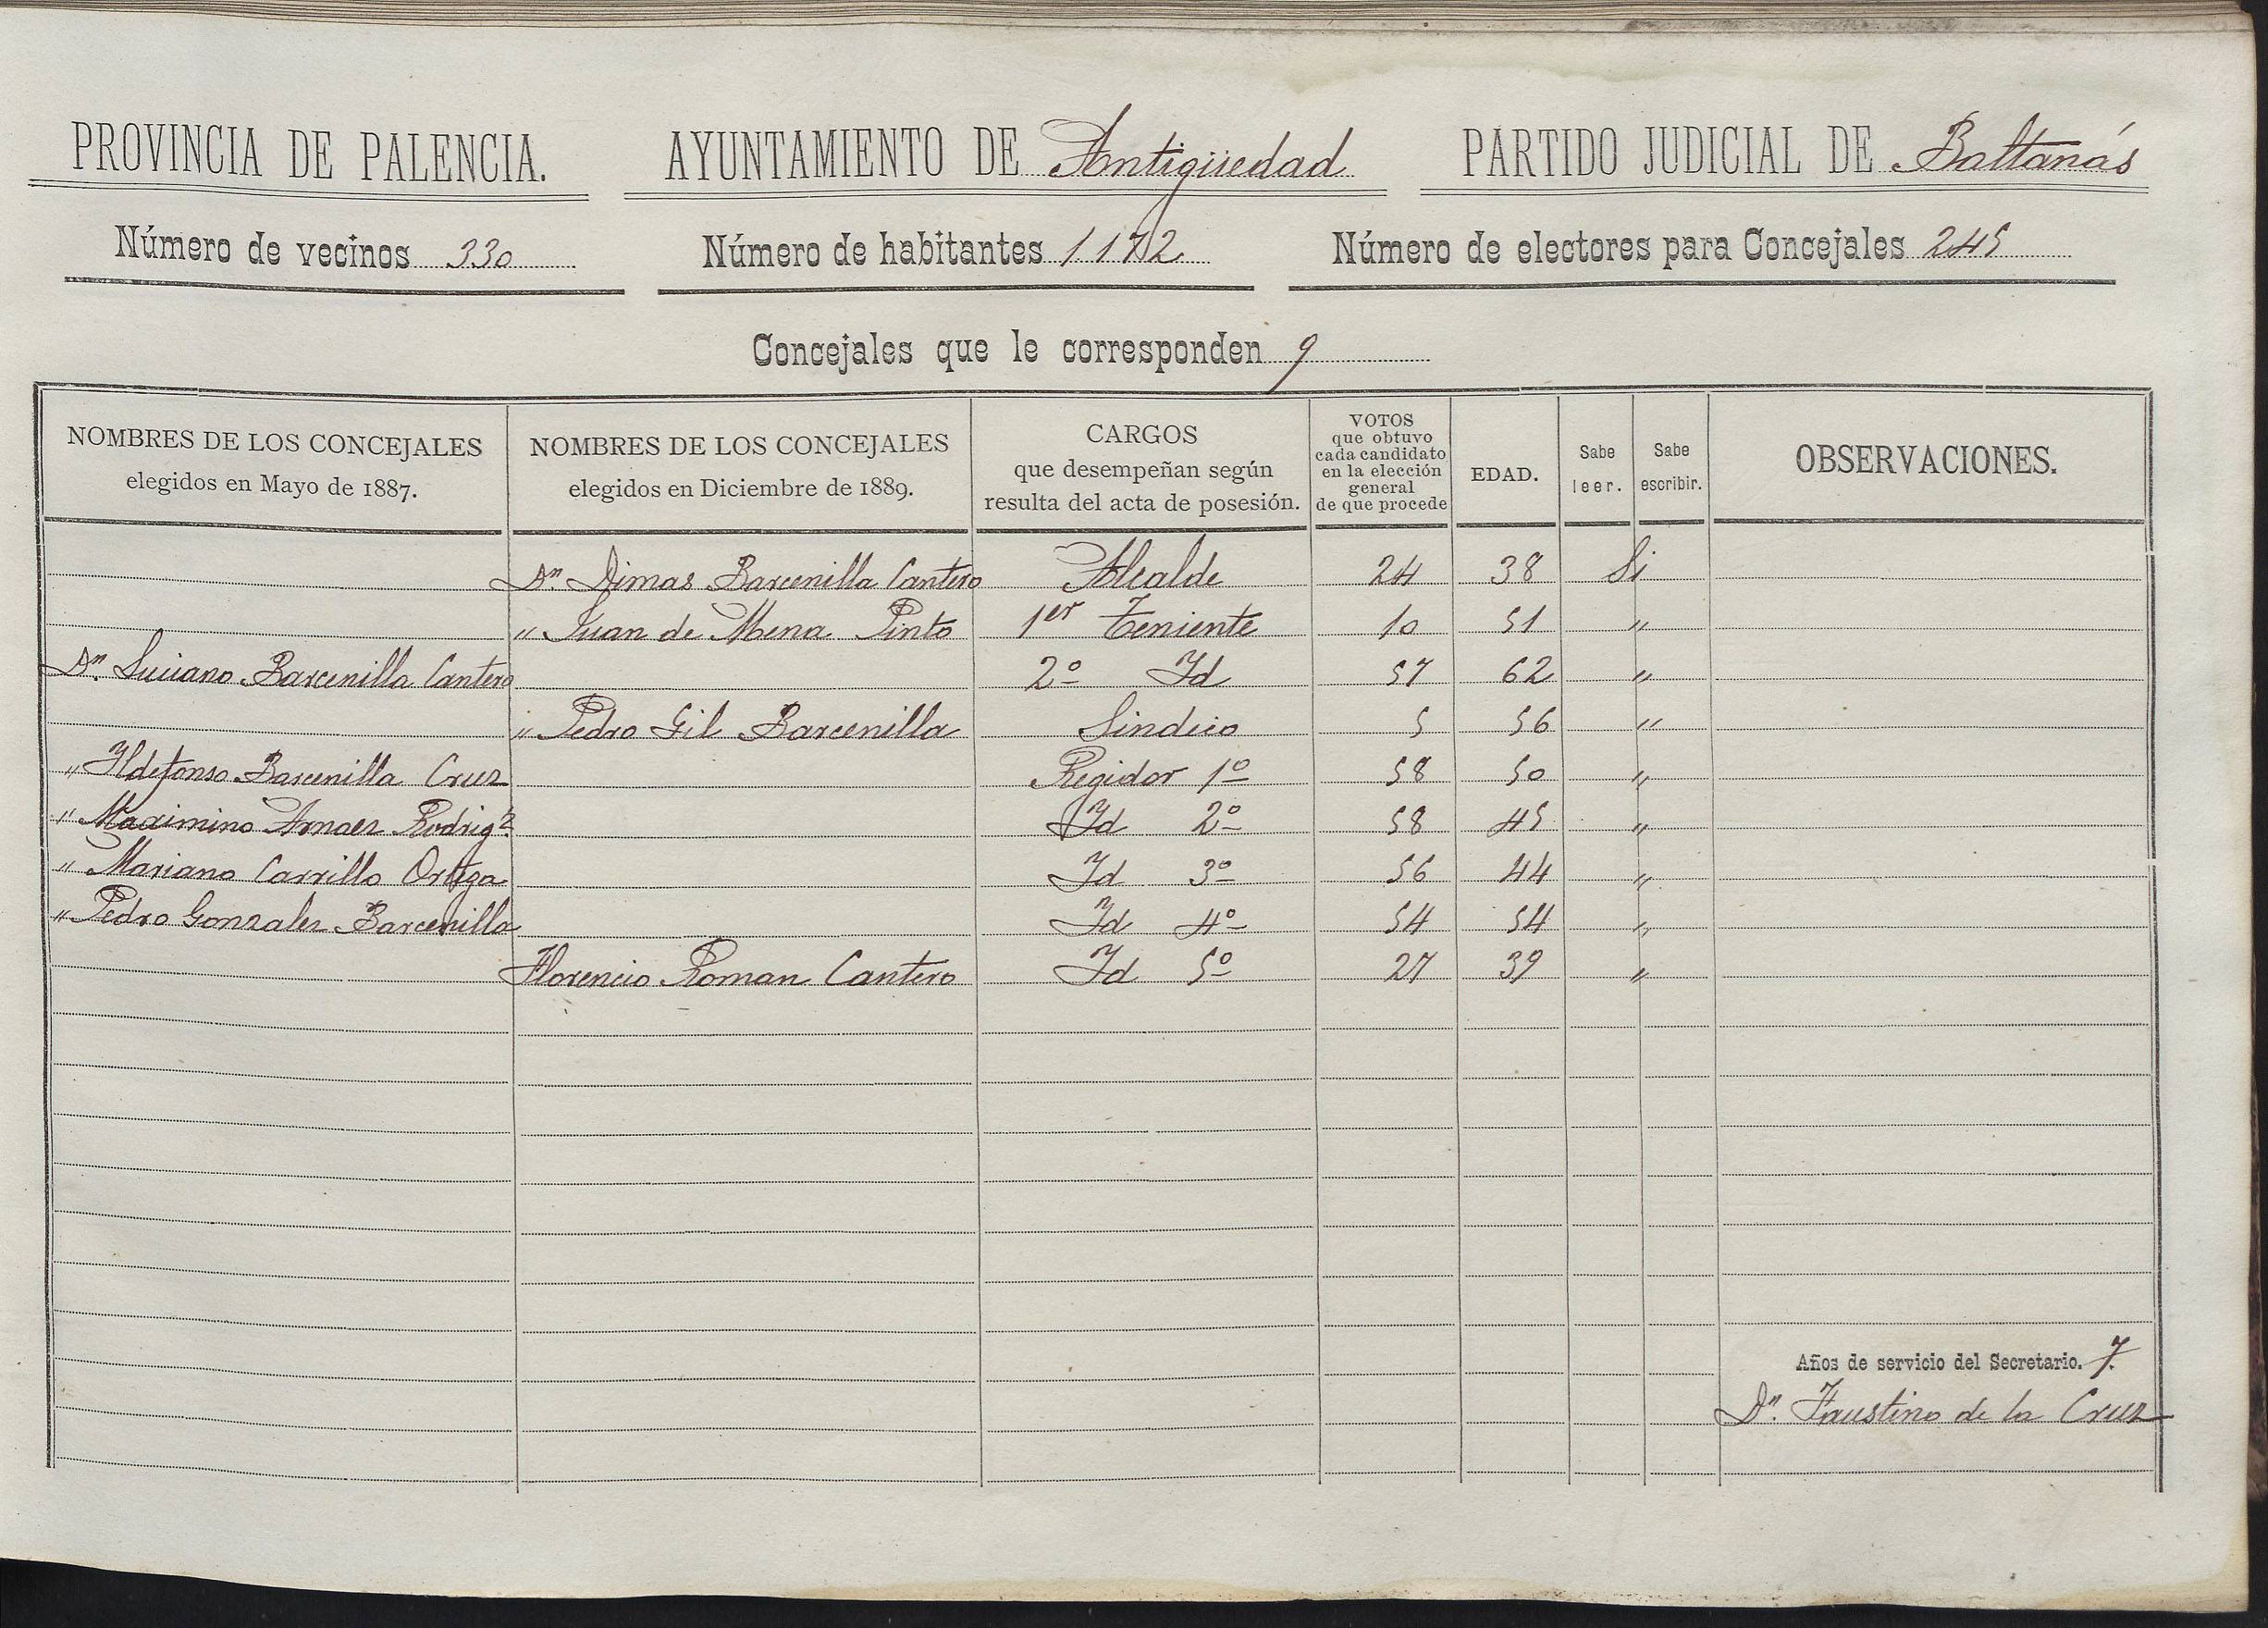 PROVINCIA DE PALENCIA. AYUNTAMIENTO DE Antigüedad PARTIDO JUDICIAL DE Baltanás
Número de vecinos 330 Número de habitantes 1172 Número de electores para Concejales 245
Concejales que le corresponden 9
NOMBRES DE LOS CONCEJALES elegidos en Mayo de 1887. NOMBRES DE LOS CONCEJALES elegidos en Diciembre de 1889. CARGOS que desempeñan según resulta del acta de posesión. VOTOS que obtuvo cada candidato en la elección general de que procede EDAD. Sabe leer. Sabe escribir. OBSERVACIONES.
Dn. Dimas Barcenilla Cantero Alcalde 24 38 Si
" Juan de Mena Pinto 1er Teniente 10 51 "
Dn. Luciano Barcenilla Cantero 2º Id 57 62 "
" Pedro Gil Barcenilla Sindico 5 56 "
" Ildefonso Barcenilla Cruz Regidor 1º 58 50 "
" Maximino Arnaez Rodrigz Id 2º 58 45 "
" Mariano Carrillo Ortega Id 3º 56 44 "
" Pedro Gonzalez Barcenilla Id 4º 54 54 "
Florencio Roman Cantero Id 5º 27 39 "
Años de servicio del Secretario. 7.
Dn. Faustino de la Cruz